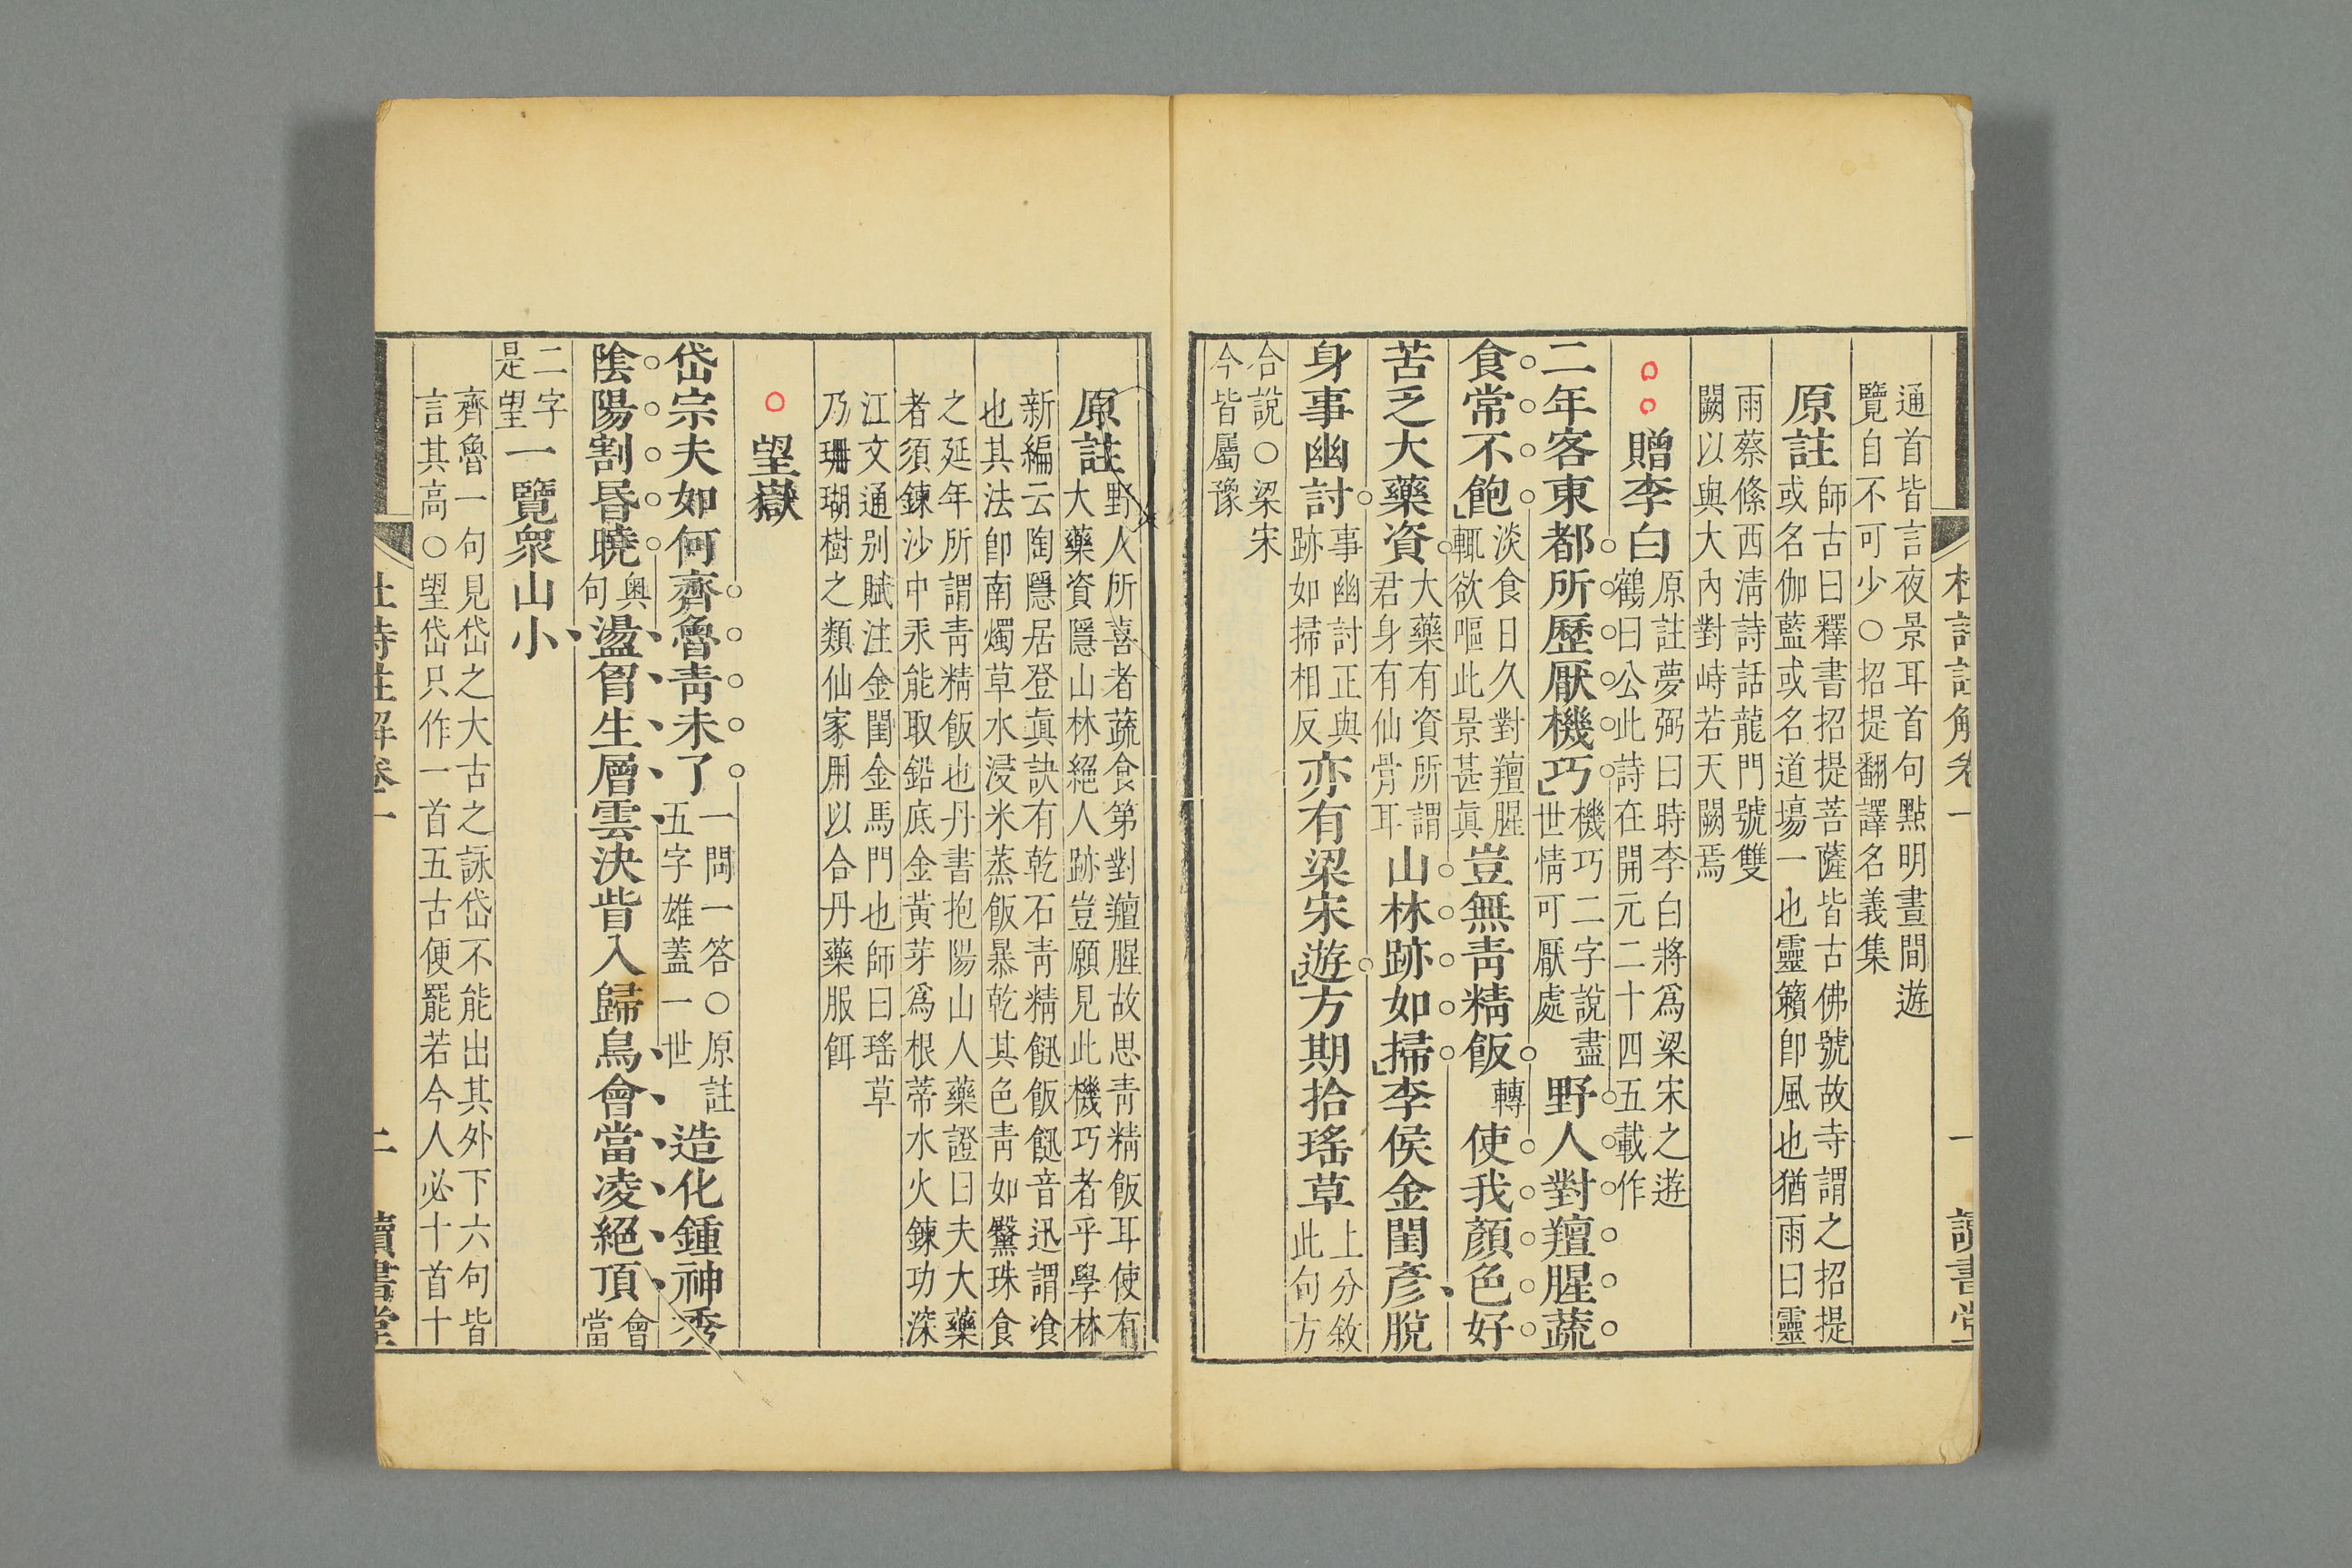 杜詩註解卷一 一 讀書堂
通首皆言夜景耳首句點明晝間遊
覽自不可少○招提翻譯名義集
原註師古曰釋書招提菩薩皆古佛號故寺謂之招提
或名伽藍或名道場一也靈籟卽風也猶雨曰靈
雨蔡絛西淸詩話龍門號雙
闕以與大內對峙若天闕焉
贈李白原註夢弼曰時李白將爲梁宋之遊
鶴曰公此詩在開元二十四五載作
二年客東都所歷厭機巧機巧二字說盡世情可厭處野人對羶腥蔬
食常不飽淡食日久對羶腥輒欲嘔此景甚眞豈無靑精飯轉使我顏色好
苦乏大藥資大藥有資所謂君身有仙骨耳山林跡如掃李侯金閨彥脫
身事幽討事幽討正與跡如掃相反亦有梁宋遊方期拾瑤草上分敘此句方
合說○梁宋今皆屬豫
原註野人所喜者蔬食第對羶腥故思靑精飯耳使有
大藥資隱山林絕人跡豈願見此機巧者乎學林
新編云陶隱居登眞訣有乾石靑精䭀飯䭀音迅謂飡
也其法卽南燭草水浸米蒸飯暴乾其色靑如黳珠食
之延年所謂靑精飯也丹書抱陽山人藥證曰夫大藥
者須鍊沙中汞能取鉛底金黃芽爲根蒂水火鍊功深
江文通别賦注金閨金馬門也師曰瑤草
乃珊瑚樹之類仙家用以合丹藥服餌
望嶽
岱宗夫如何齊魯靑未了一問一答○原註五字雄蓋一世造化鍾神秀
陰陽割昏曉奥句盪胷生層雲決眥入歸鳥會當凌絕頂會當
二字是望一覽衆山小
齊魯一句見岱之大古之詠岱不能出其外下六句皆
言其高○望岱只作一首五古便罷若今人必十首十
杜詩註解卷一 二 讀書堂